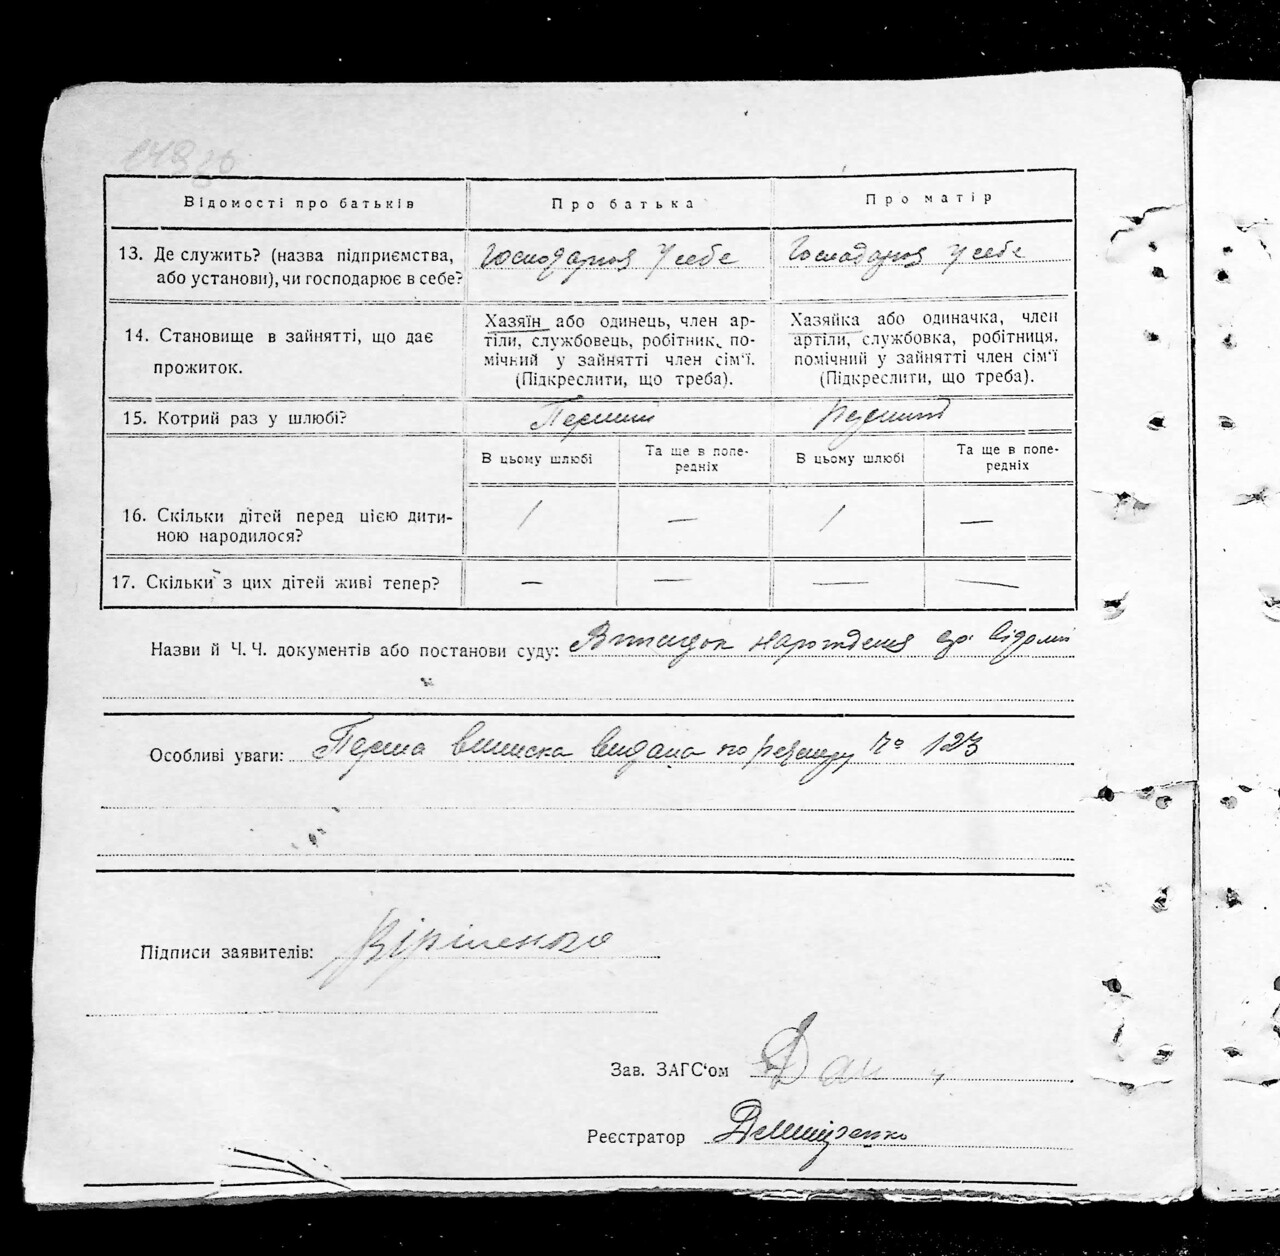 Відомості про батьків
Про батька
Про матір
13. Де служить? (назва підприємства,
або установи), чи господарює в себе?
Господарює у себе
Господарює у себе
14. Становище в зайнятті, що дає
прожиток.
Хазяїн або одинець, член ар-
тіли, службовець, робітник, по-
мічний у зайнятті член сім'ї.
(Підкреслити, що треба).
Хазяйка або одиначка, член
артіли, службовка, робітниця,
помічний у зайнятті член сім'ї
(Підкреслити, що треба).
15. Котрий раз у шлюбі?
Перший
В цьому шлюбі
Та ще в попе-
редніх
В цьому шлюбі
Та ще в попе-
редніх
16. Скільки дітей перед цією дити-
ною народилося?
1 — 1 —
17. Скільки з цих дітей живі тепер?
— — — —
Назви й Ч. Ч. документів або постанови суду:
Особливі уваги: Перша виписка видана по № 123
Підписи заявителів:
Зав. ЗАГС'ом
Реєстратор